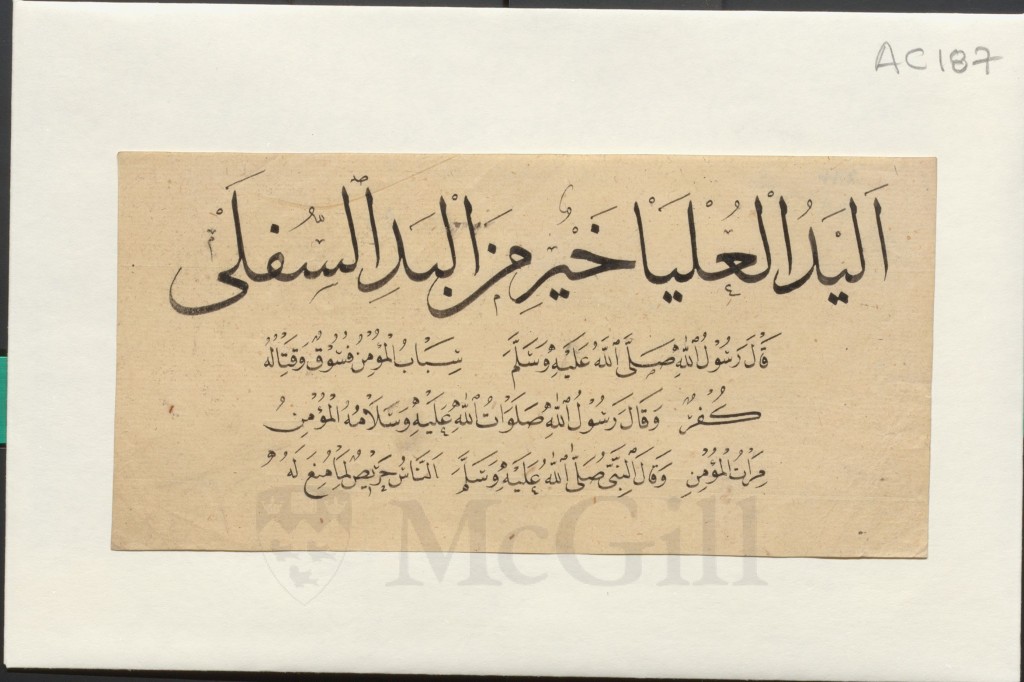 AC187
اَلْيَدُ الْعُلْيَا خَيْرٌ مِنَ الْيَدِ السُّفْلَىٰ
قَالَ رَسُوْلُ اللّٰهِ صَلَّى اللّٰهُ عَلَيْهِ وَسَلَّمَ سِبَابُ الْمُؤْمِنِ فُسُوْقٌ وَقِتَالُهُ
كُفْرٌ وَقَالَ رَسُوْلُ اللّٰهِ صَلَوَاتُ اللّٰهِ عَلَيْهِ وَسَلَامُهُ الْمُؤْمِنُ
مِرْاٰتُ الْمُؤْمِنِ وَقَالَ النَّبِىُّ صَلَّى اللّٰهُ عَلَيْهِ وَسَلَّمَ اَلنَّاسُ حَرِيْصٌ لِمَا مُنِعَ لَهُ
McGill